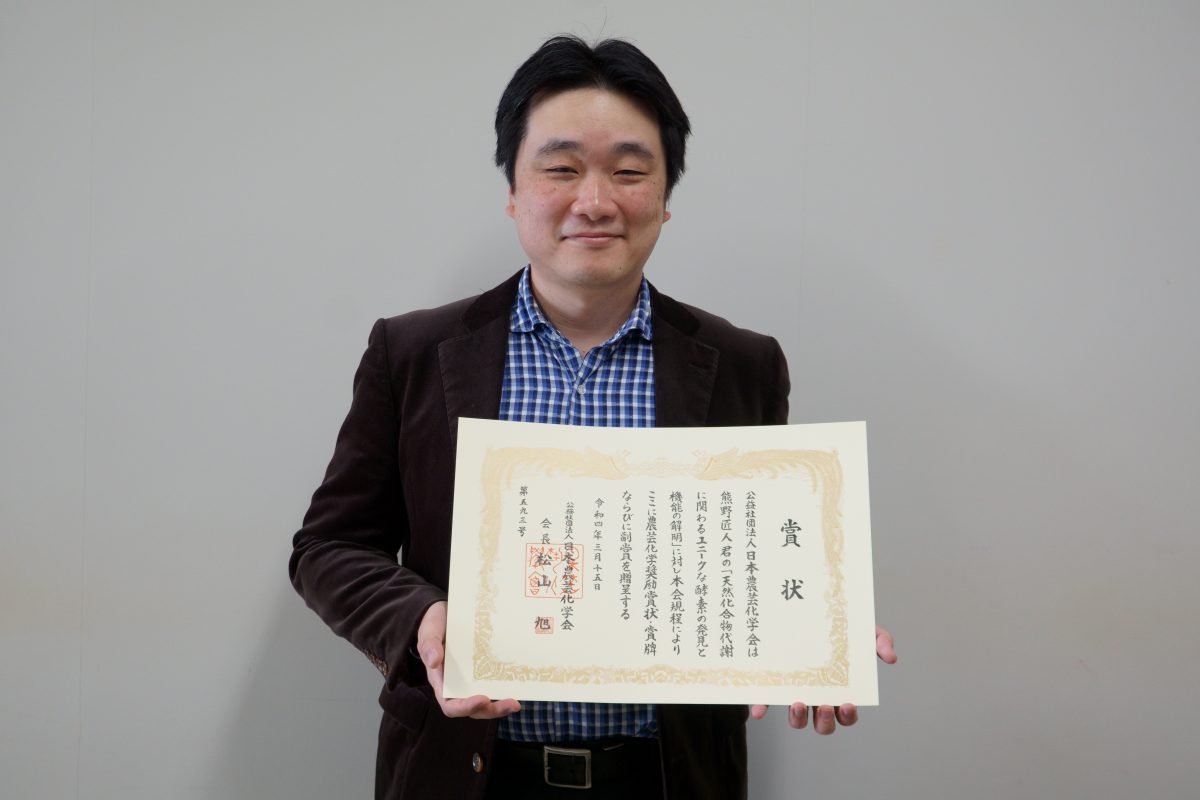 賞状
公益社団法人日本農芸化学会は
熊野匠人君の「天然化合物代謝
に関わるユニークな酵素の発見と
機能の解明」に対し本会規程により
ここに農芸化学奨励賞状・賞牌
ならびに副賞を贈呈する
令和四年三月十五日
公益社団法人日本農芸化学会
会長 松山 旭
第五九三号